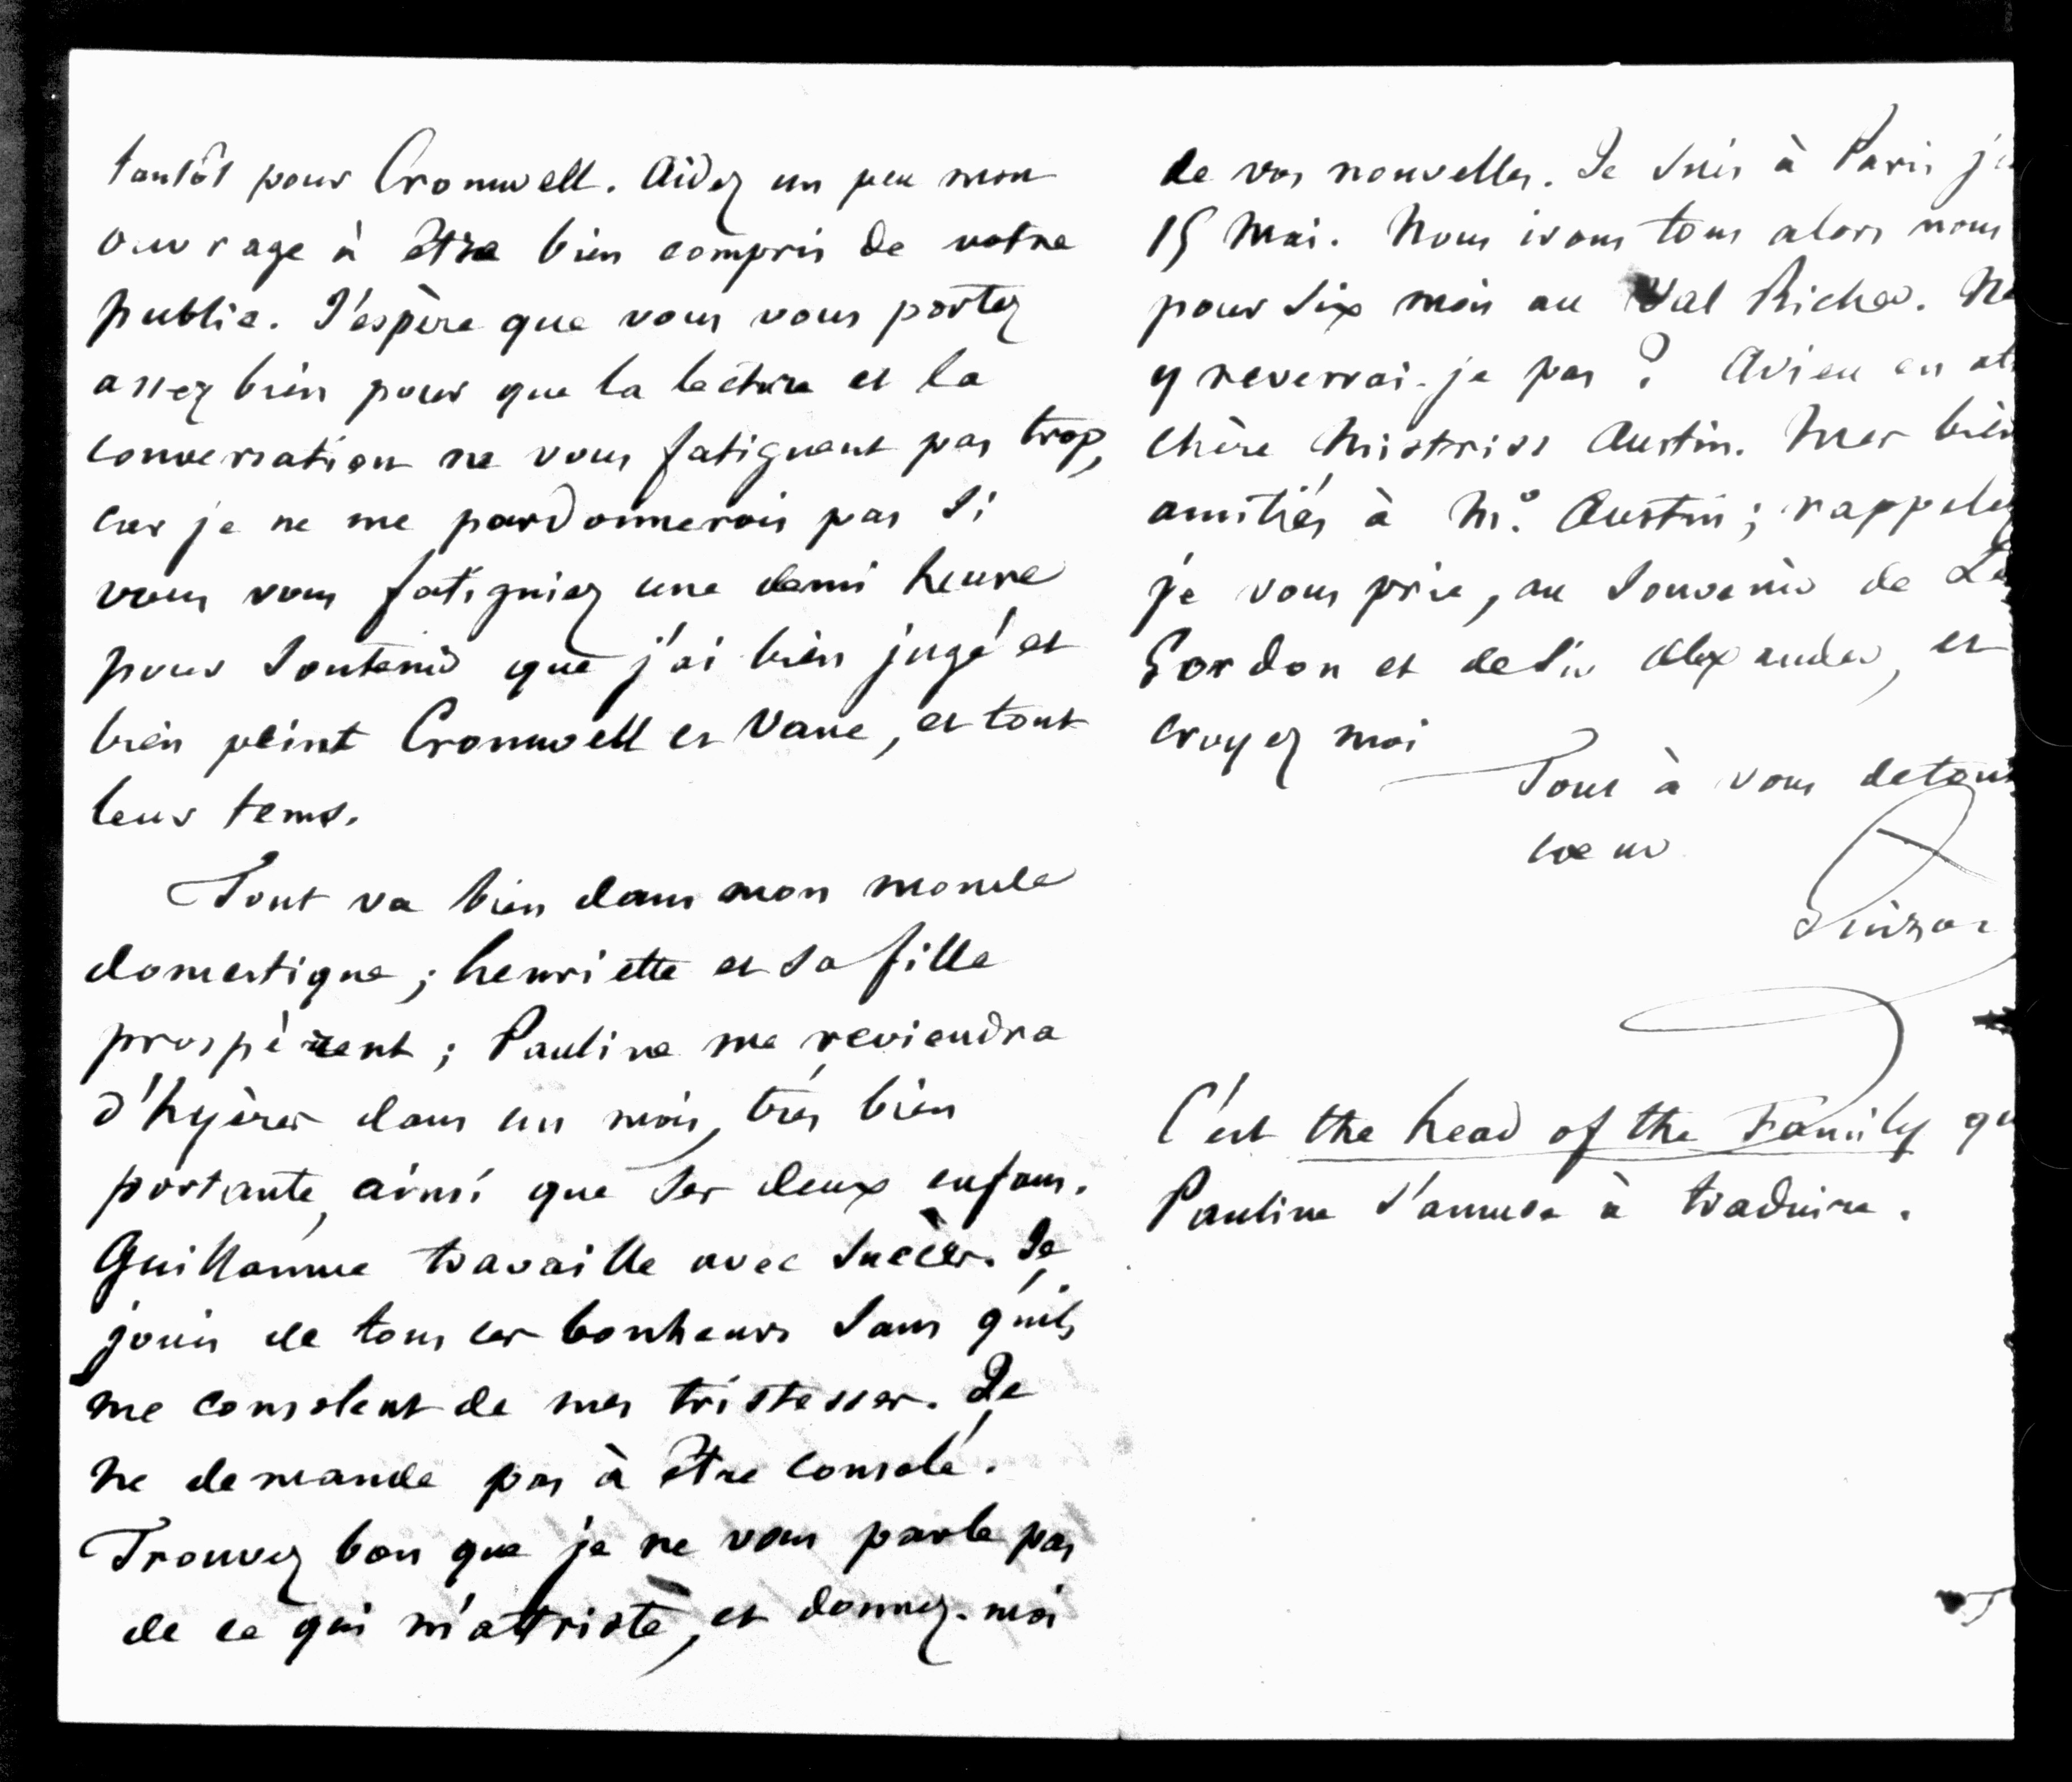 tantôt pour Cromwell. Aidez un peu mon
ouvrage à être bien compris de votre
public. J'espère que vous vous portez
assez bien pour que la lecture et la
conversation ne vous fatiguent pas trop,
car je ne me pardonnerois pas si
vous vous fatiguiez une demi heure
pour soutenir que j'ai bien jugé et
bien peint Cromwell et Vane, et tout
leur tems.
Tout va bien dans mon monde
domestique ; henriette et sa fille
prospèrent ; Pauline me reviendra
d'hyères dans un mois, très bien
portante, ainsi que ses deux enfans.
Guillaume travaille avec succès. Je
jouis de tous ces bonheurs sans qu'ils
me consolent de mes tristesses. Je
ne demande pas à être consolé.
Trouvez bon que je ne vous parle pas
de ce qui m'attriste, et donnez-moi
de vos nouvelles. Je suis à Paris
15 Mai. Nous irons tous alors nous
pour six mois au Val Richer. Ne
y reverrai-je pas ? Adieu en
chère Mistriss Austin. Mes bien
amitiés à Mr. Austin ; rappelez
je vous prie, au souvenir de
Gordon et de Sir Alexander, et
croyez moi
Tout à vous de tout
coeur
Guizot
C'est the head of the Family
Pauline s'amuse à traduire.